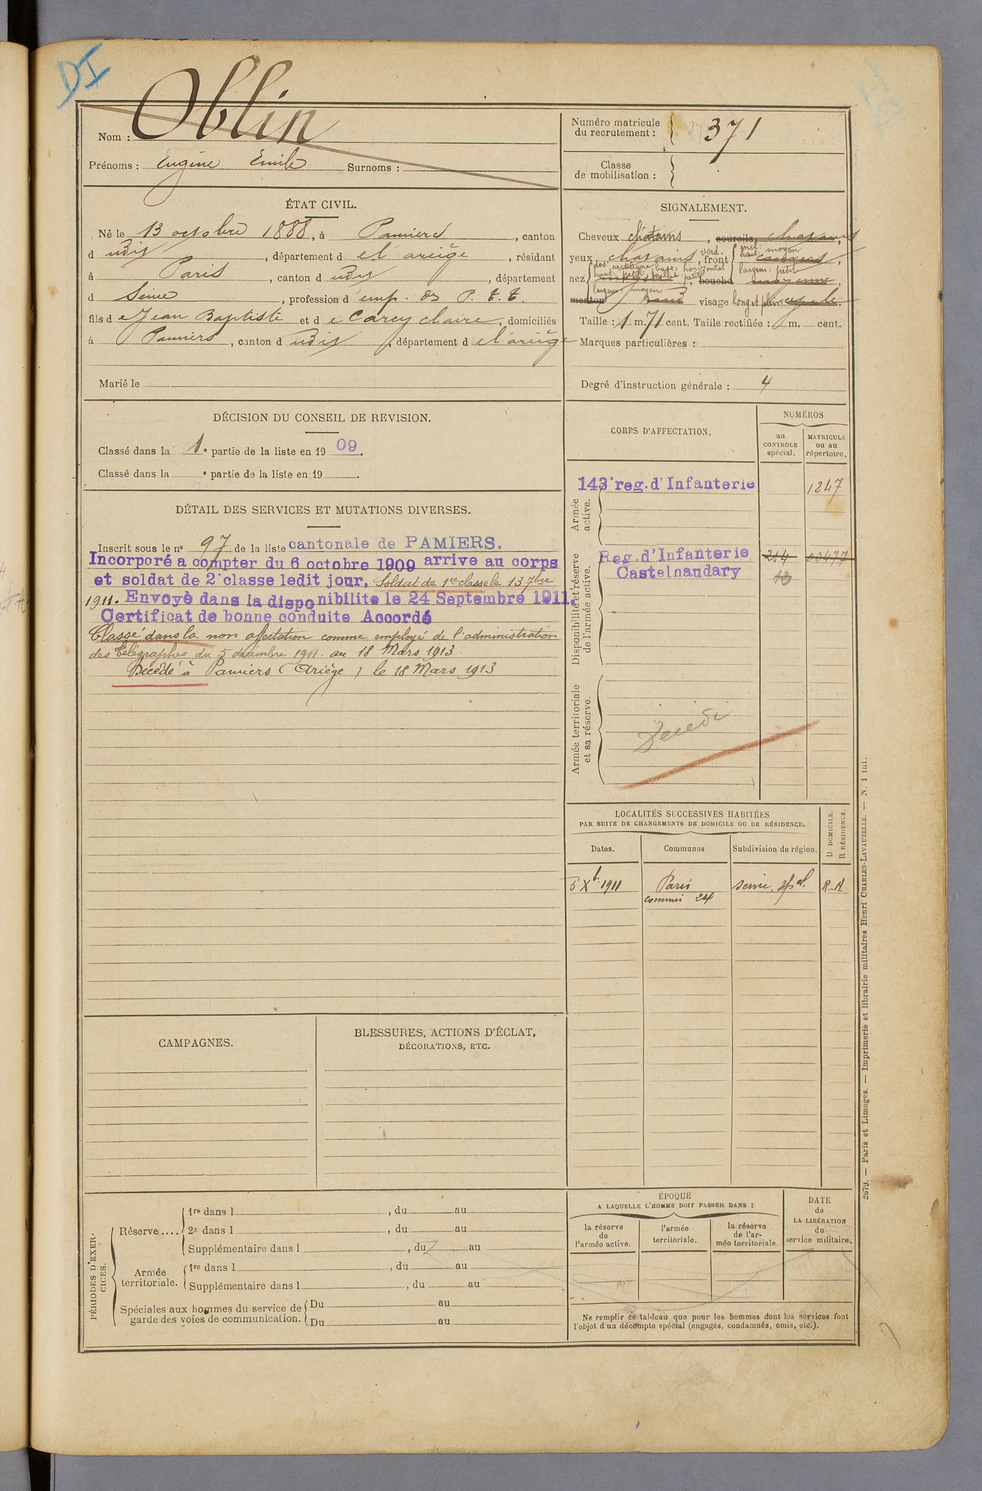 DI
Nom : Oblin
Prénoms : Eugène Emile Surnoms :
Numéro matricule du recrutement : 371
Classe de mobilisation :
ÉTAT CIVIL.
Né le 13 octobre 1888, à Pamiers, canton
dudit, département de l'ariège, résidant
à Paris, canton dudit, département
d Seine, profession d'emp. des P. T. T.
fils de Jean Baptiste et de Carcy Claire, domiciliés
à Pamiers, canton dudit, département de l'ariège
Marié le
SIGNALEMENT.
Cheveux chatains, sourcils chatains
yeux chatains verd., front incl: moyen haut: moyen largeur: petit
nez dos: rectiligne base: horizontal haut: petit saillie petit largeur: moyen, bouche moyenne,
menton visage long et plein
Taille : 1 m. 71 cent. Taille rectifiée : m. cent.
Marques particulières :
Degré d'instruction générale : 4
DÉCISION DU CONSEIL DE REVISION.
Classé dans la 1e partie de la liste en 1909.
Classé dans la e partie de la liste en 19 .
DÉTAIL DES SERVICES ET MUTATIONS DIVERSES.
Inscrit sous le n° 97 de la liste cantonale de PAMIERS.
Incorporé a compter du 6 octobre 1909 arrive au corps
et soldat de 2e classe ledit jour, Soldat de 1re classe le 13 7bre
1911. Envoyé dans la disponibilite le 24 Septembre 1911.
Certificat de bonne conduite Accordé
Classé dans la non affectation comme employé de l'administration
des Télégraphes du 5 décembre 1911 au 18 Mars 1913.
Décédé à Pamiers (Ariège) le 18 Mars 1913
CORPS D'AFFECTATION.
NUMÉROS
au CONTROLE spécial.
MATRICULE ou au répertoire.
Armée active.
143e reg. d'Infanterie 1247
Disponibilité et réserve de l'armée active.
Reg. d'Infanterie 214
Castelnaudary
Armée territoriale et sa réserve.
Décédé
LOCALITÉS SUCCESSIVES HABITÉES
PAR SUITE DE CHANGEMENTS DE DOMICILE OU DE RÉSIDENCE.
Dates. Communes Subdivision de région. D DOMICILE. R RÉSIDENCE.
5 Xbre 1911 Paris Seine R.A
24
CAMPAGNES.
BLESSURES, ACTIONS D'ÉCLAT,
DÉCORATIONS, ETC.
PÉRIODES D'EXERCICES.
Réserve....
1re dans l , du au
2e dans l , du au
Supplémentaire dans l , du au
Armée territoriale.
1re dans l , du au
Supplémentaire dans l , du au
Spéciales aux hommes du service de garde des voies de communication.
Du au
Du au
ÉPOQUE
A LAQUELLE L'HOMME DOIT PASSER DANS :
la réserve de l'armée active.
l'armée territoriale.
la réserve de l'armée territoriale.
DATE de LA LIBÉRATION du service militaire.
Ne remplir ce tableau que pour les hommes dont les services font
l'objet d'un décompte spécial (engagés, condamnés, omis, etc.).
2079. — Paris et Limoges. — Imprimerie et librairie militaires Henri CHARLES-LAVAUZELLE. — N. 1 int.